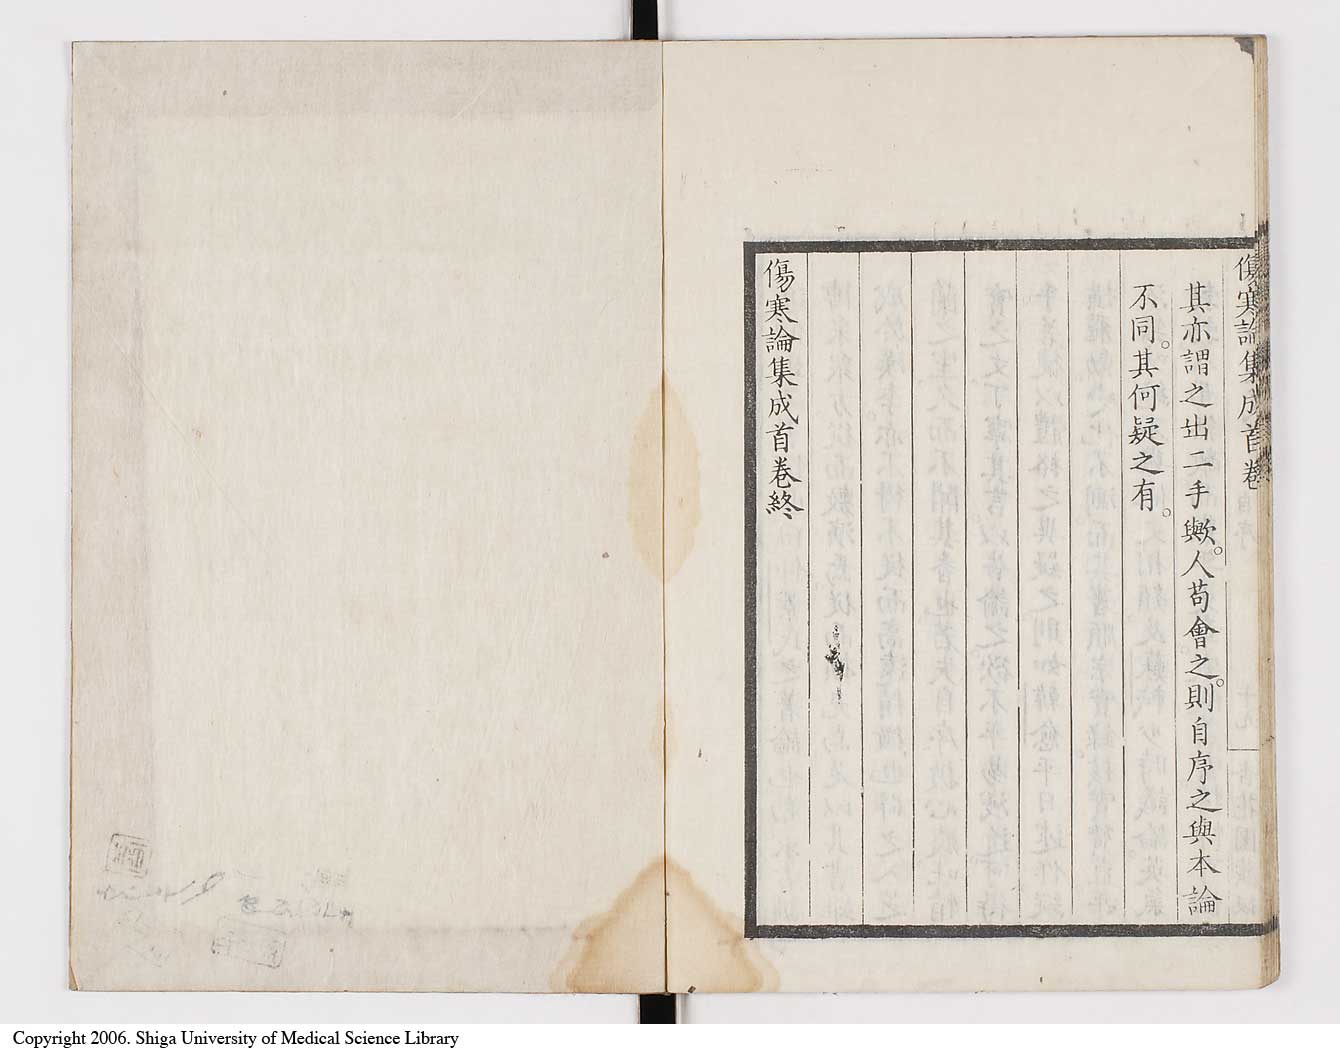 傷寒論集成首卷
自序
十九
杏花園藏
其亦謂之出二手歟。人苟會之。則自序之與本論
不同。其何疑之有。
傷寒論集成首卷終
Copyright 2006. Shiga University of Medical Science Library